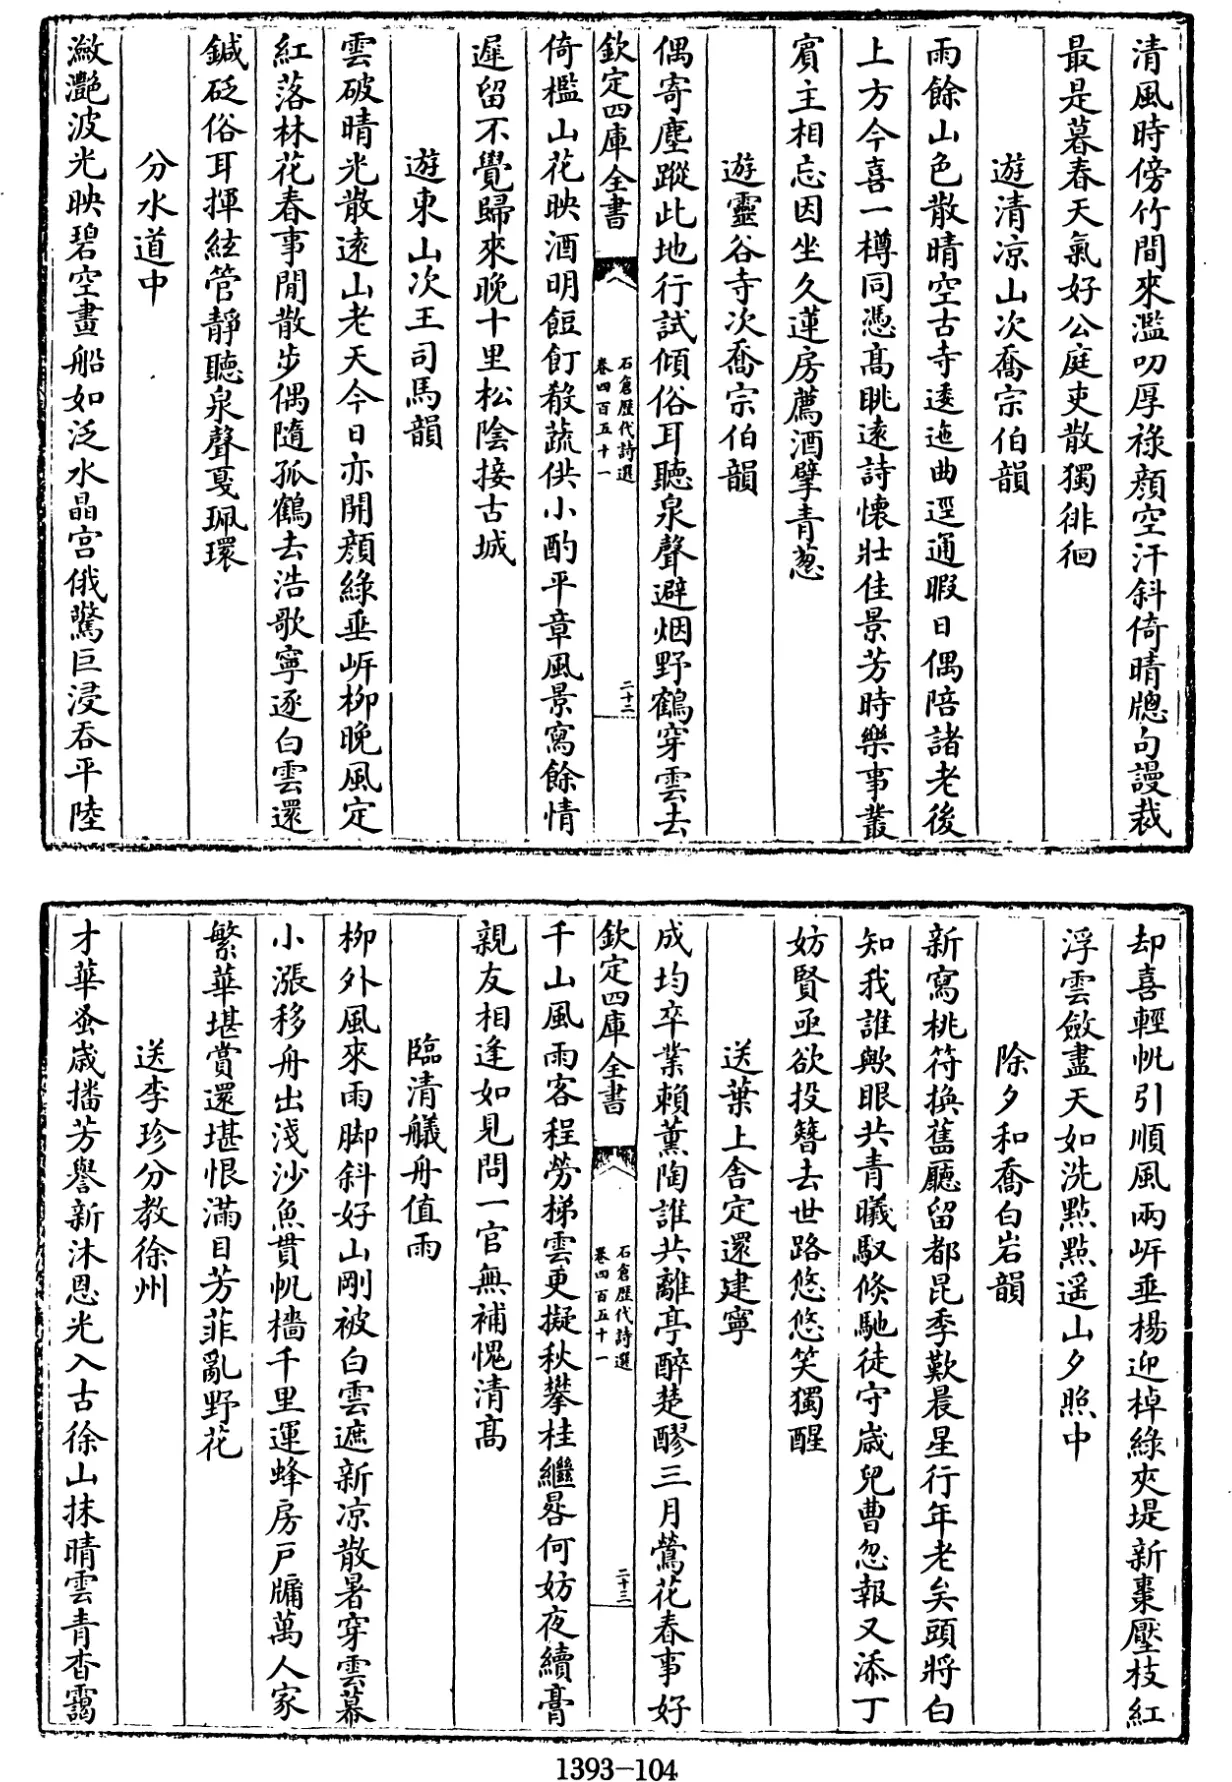 清風時傍竹間來濫叨厚祿顏空汗斜倚晴牕句謾裁
最是暮春天氣好公庭吏散獨徘徊
遊清凉山次喬宗伯韻
雨餘山色散晴空古寺逶迤曲逕通暇日偶陪諸老後
上方今喜一樽同憑髙眺遠詩懷壯佳景芳時樂事叢
賓主相忘因坐久蓮房薦酒擘青葱
遊靈谷寺次喬宗伯韻
偶寄塵蹤此地行試傾俗耳聽泉聲避烟野鶴穿雲去
欽定四庫全書
石倉歴代詩選
卷四百五十一
二十二
倚檻山花映酒明飣餖殽蔬供小酌平章風景寫餘情
遲留不覺歸來晚十里松陰接古城
遊東山次王司馬韻
雲破晴光散遠山老天今日亦開顏綠垂岍柳晚風定
紅落林花春事閒散步偶隨孤鶴去浩歌寧逐白雲還
鍼砭俗耳揮絃管靜聽泉聲戛珮環
分水道中
瀲灧波光映碧空畫船如泛水晶宮俄驚巨浸吞平陸
却喜輕帆引順風兩岍垂楊迎棹綠夾堤新棗壓枝紅
浮雲斂盡天如洗點點遥山夕照中
除夕和喬白岩韻
新寫桃符換舊廳留都昆季歎晨星行年老矣頭將白
知我誰歟眼共青曦馭倐馳徒守歲兒曹忽報又添丁
妨賢亟欲投簪去世路悠悠笑獨醒
送葉上舍定還建寧
成均卒業賴薰陶誰共離亭醉楚醪三月鶯花春事好
欽定四庫全書
石倉歴代詩選
卷四百五十一
二十三
千山風雨客程勞梯雲更擬秋攀桂繼晷何妨夜續膏
親友相逢如見問一官無補愧清髙
臨清艤舟值雨
柳外風來雨脚斜好山剛被白雲遮新凉散暑穿雲幕
小漲移舟出淺沙魚貫帆檣千里運蜂房戸牖萬人家
繁華堪賞還堪恨滿目芳菲亂野花
送李珍分教徐州
才華蚤歲播芳譽新沐恩光入古徐山抹晴雲青杳靄
1393-104